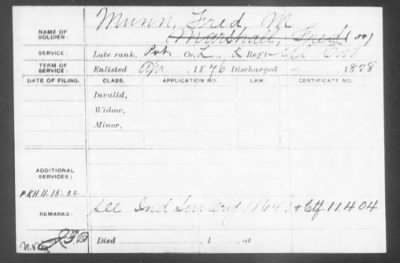 NAME OF SOLDIER: Munn, Fred M
Marshall, Fred
SERVICE: Late rank, Pvt Co. L, & Reg't Cav
TERM OF SERVICE: Enlisted 1876 Discharged — 1878
DATE OF FILING. CLASS. APPLICATION NO. LAW. CERTIFICATE NO.
Invalid,
Widow,
Minor,
ADDITIONAL SERVICES:
REMARKS: See Ind Sur Orig & Ctf 11404
Died , 1 , at